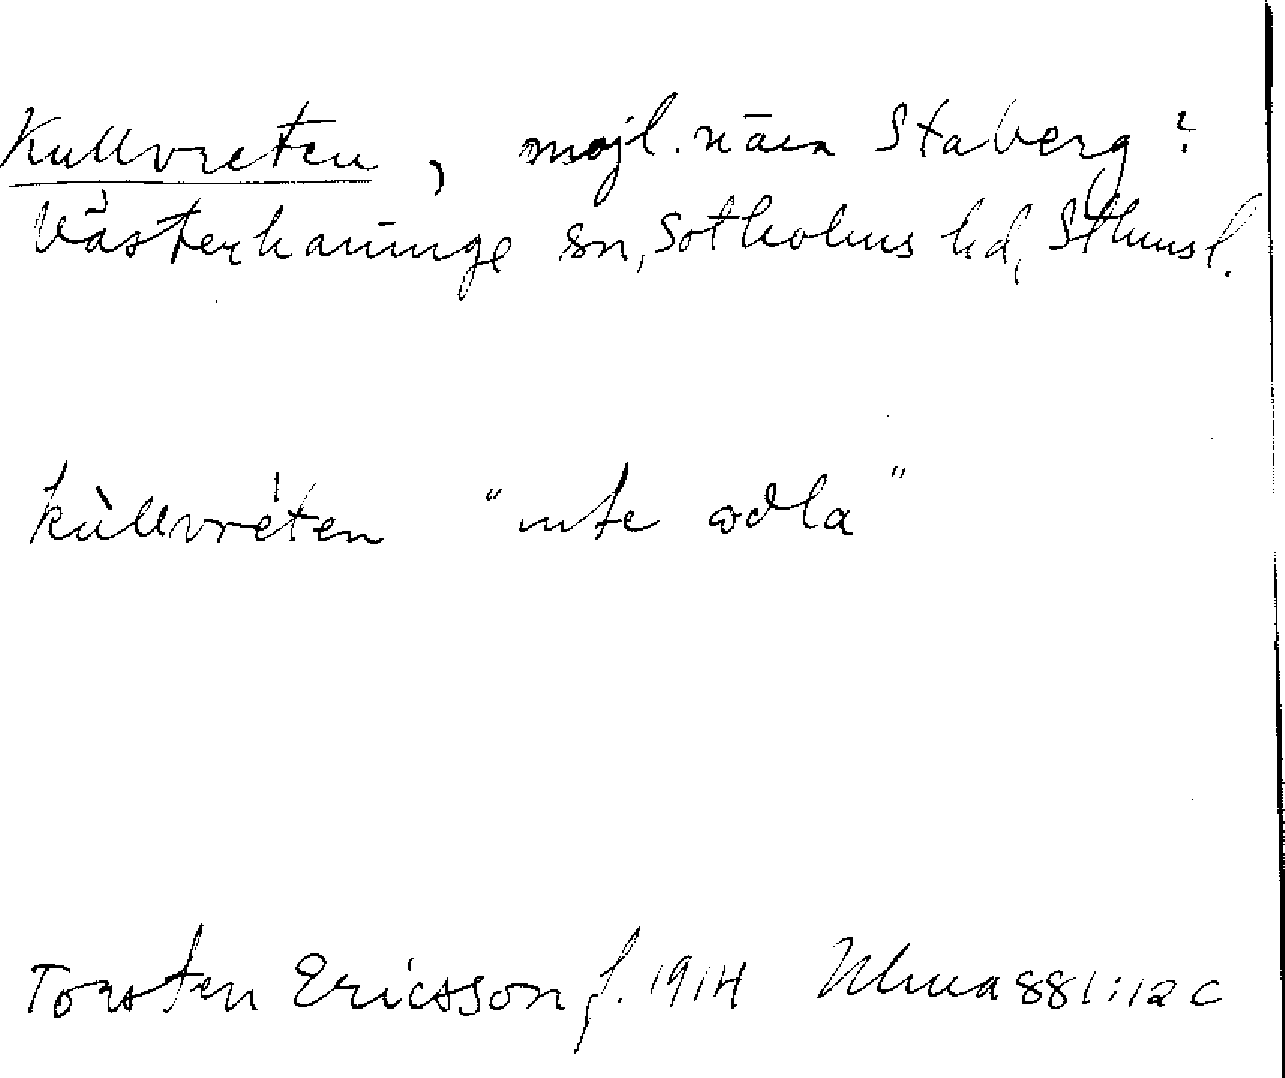 Kullvreten, möjl. nära Staberg?
Västerhaninge sn, Sotholms hd, Sthmsl.
kùllvréten "inte odla"
Torsten Ericsson f. 1914 Ulma 881:12 c